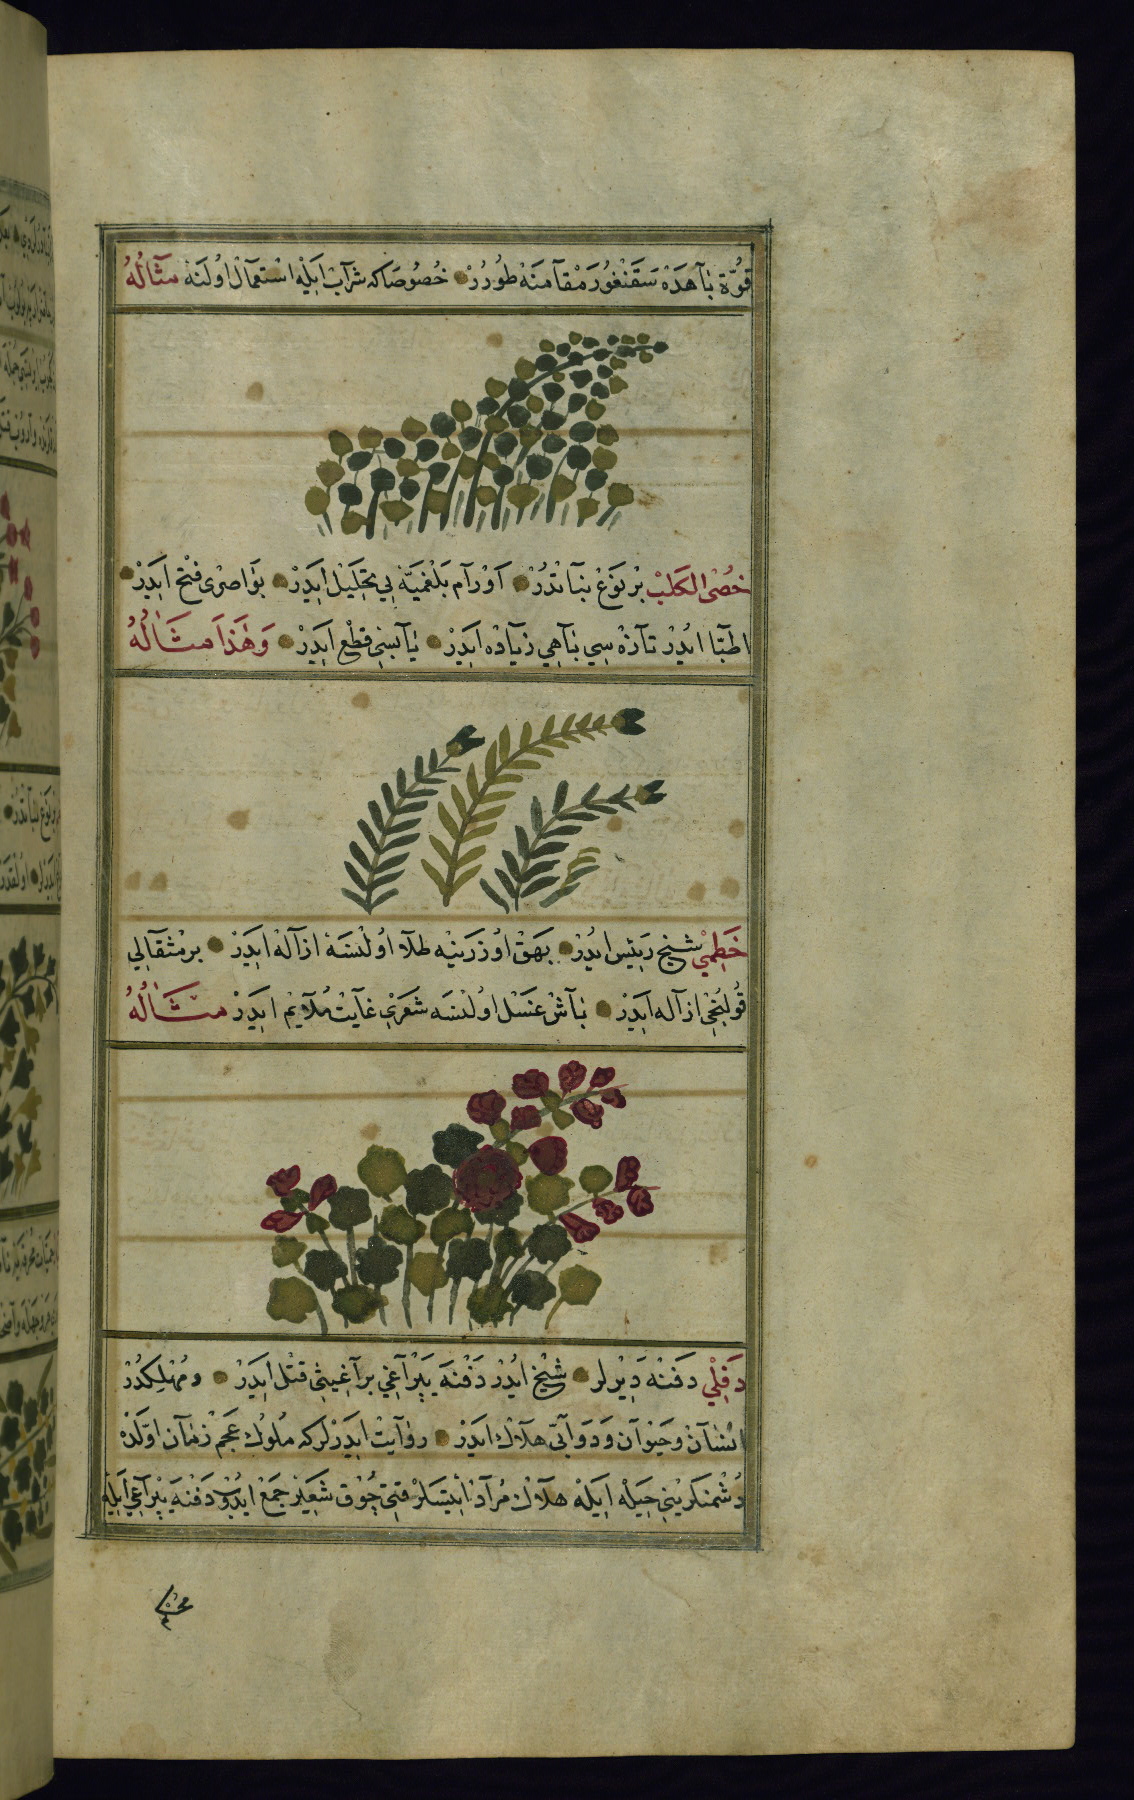 قُوَّة بَآهَدَه سَقَنْقُور مَقَامَنَه طُورُرْ خُصُوصَا كه شَرَابْ اِيلَه اسْتِعمَالْ اُولَنَه مثَالُهُ
خُصْىُ الكَلبْ بْر نَوْع نبَاتْدُرْ اَوْرَام بَلْغَمِيَّه يِي تَحْلِيلْ اِيدَرْ بَوَاصرى فتْح ايدَرْ
اطبَّا ايدُرْ تَازَه سِي بَاهِي زِيَادَه ايدَرْ يَابسِي قطْع ايدَرْ وَهَذَا مثَالُهُ
خَطِمْي شيخ رَئِيس ايدُرْ بَهَقْ اُوزَرينه طلَا اُولُنسَه ازَالَه ايدَرْ بر مثقَالِي
قُولنْجِي ازَاله ايدَرْ بَاشْ غسَل اُولُنسَه شعَرِي غَايتْ مُلَايمْ ايدَرْ مثَالُهُ
دَفِلْي دَفنَه دِيرلر شيْخ ايدُرْ دَفْنَه يپَرَاغِي بر آغِيشِي قتْل ايدَرْ ومُهلِكدُرْ
انسَانْ وحَيوَان وَدَوَابّى هلَاك ايدَرْ روَايتْ ايدَرْلر كه مُلوُك عَجمْ زمَان اوَّلدَه
دُشْمنلرينِي حِيلَه ايلَه هلَاك مُرَادْ ايتسَلرْ قتِي چُوق شعَيرْ جمَعْ ايدُوبْ دَفنَه يپرَاغِي ايلَه